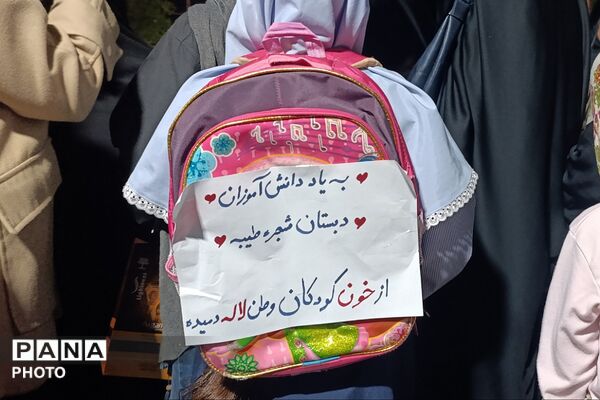 به یاد دانش آموزان
دبستان شجرء طیبه
از خون کودکان وطن لاله دمیده
PANA
PHOTO